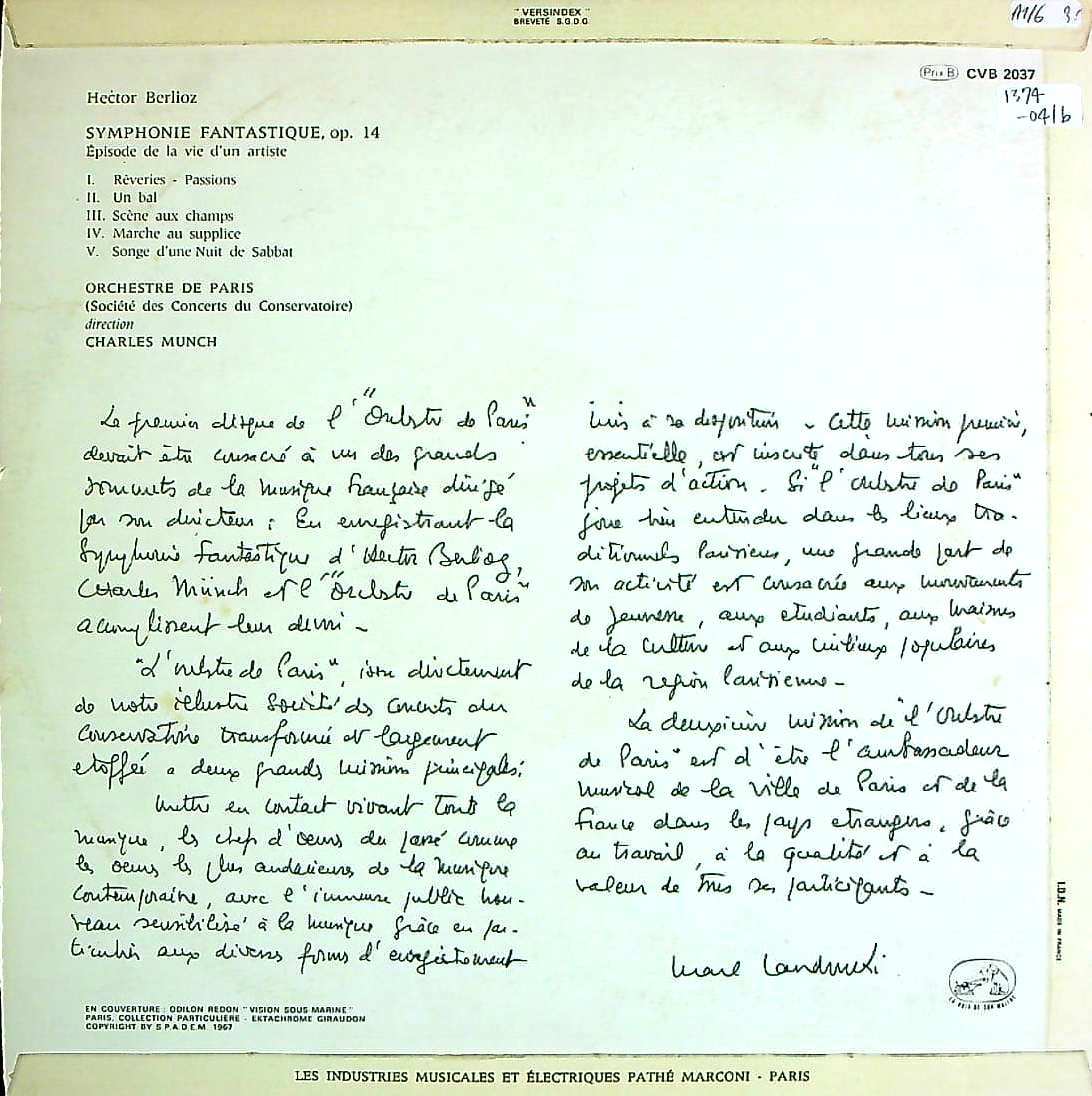 " VERSINDEX "
BREVETÉ S.G.D.G.
A1/6
Prix B CVB 2037
1374
-04/b
Hector Berlioz
SYMPHONIE FANTASTIQUE, op. 14
Épisode de la vie d'un artiste
I. Rêveries - Passions
II. Un bal
III. Scène aux champs
IV. Marche au supplice
V. Songe d'une Nuit de Sabbat
ORCHESTRE DE PARIS
(Société des Concerts du Conservatoire)
direction
CHARLES MUNCH
Le premier disque de l' "Orchestre de Paris"
devait être consacré à un des grands
sommets de la musique française dirigé
par son directeur : En enregistrant la
Symphonie Fantastique d'Hector Berlioz,
Charles Münch et l' "Orchestre de Paris"
accomplissent leur devoir -
"L'orchestre de Paris", issu directement
de notre illustre Société des Concerts du
Conservatoire transformée et largement
etoffée a deux grandes missions principales:
mettre en contact vivant toute la
musique, les chefs d'oeuvres du passé comme
les oeuvres les plus audacieuses de la musique
contemporaine, avec l'immense public nou-
veau sensibilisé à la musique grâce en par-
ticulier aux diverses formes d'enregistrement
mis à sa disposition - Cette mission première,
essentielle, est inscrite dans tous ses
projets d'action. Si "l'Orchestre de Paris"
joue bien entendu dans les lieux tra-
ditionnels Parisiens, une grande part de
son activité est consacrée aux mouvements
de jeunesse, aux etudiants, aux maisons
de la culture et aux milieux populaires
de la region Parisienne -
La deuxième mission de "l'Orchestre
de Paris" est d'être l'ambassadeur
musical de la ville de Paris et de la
France dans les pays etrangers, grâce
au travail, à la qualité et à la
valeur de tous ses participants -
Marc Landowski
LA VOIX DE SON MAITRE
I.D.N. MADE IN FRANCE
EN COUVERTURE : ODILON REDON "VISION SOUS-MARINE"
PARIS, COLLECTION PARTICULIÈRE - EKTACHROME GIRAUDON
COPYRIGHT BY S.P.A.D.E.M. 1967
LES INDUSTRIES MUSICALES ET ÉLECTRIQUES PATHÉ MARCONI - PARIS